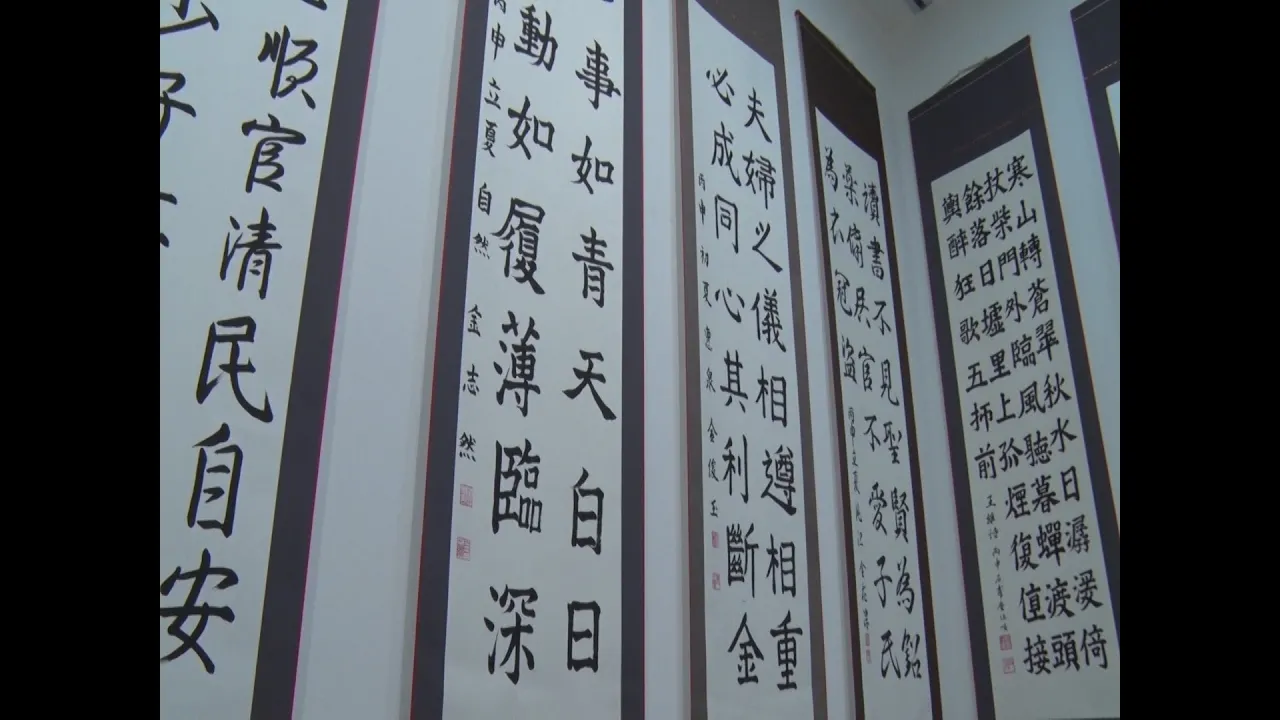 寒山轉蒼翠秋水日潺湲倚
杖柴門外臨風聽暮蟬渡頭
餘落日墟里上孤煙復值接
輿醉狂歌五柳前
王維詩 丙申
讀書不見聖賢為鉛
槧傭居官不愛子民
為衣冠盜
丙申立夏
夫婦之儀相遵相重
必成同心其利斷金
丙申初夏惠泉金俊玉
事如青天白日
動如履薄臨深
丙申立夏自然金志然
順官清民自安